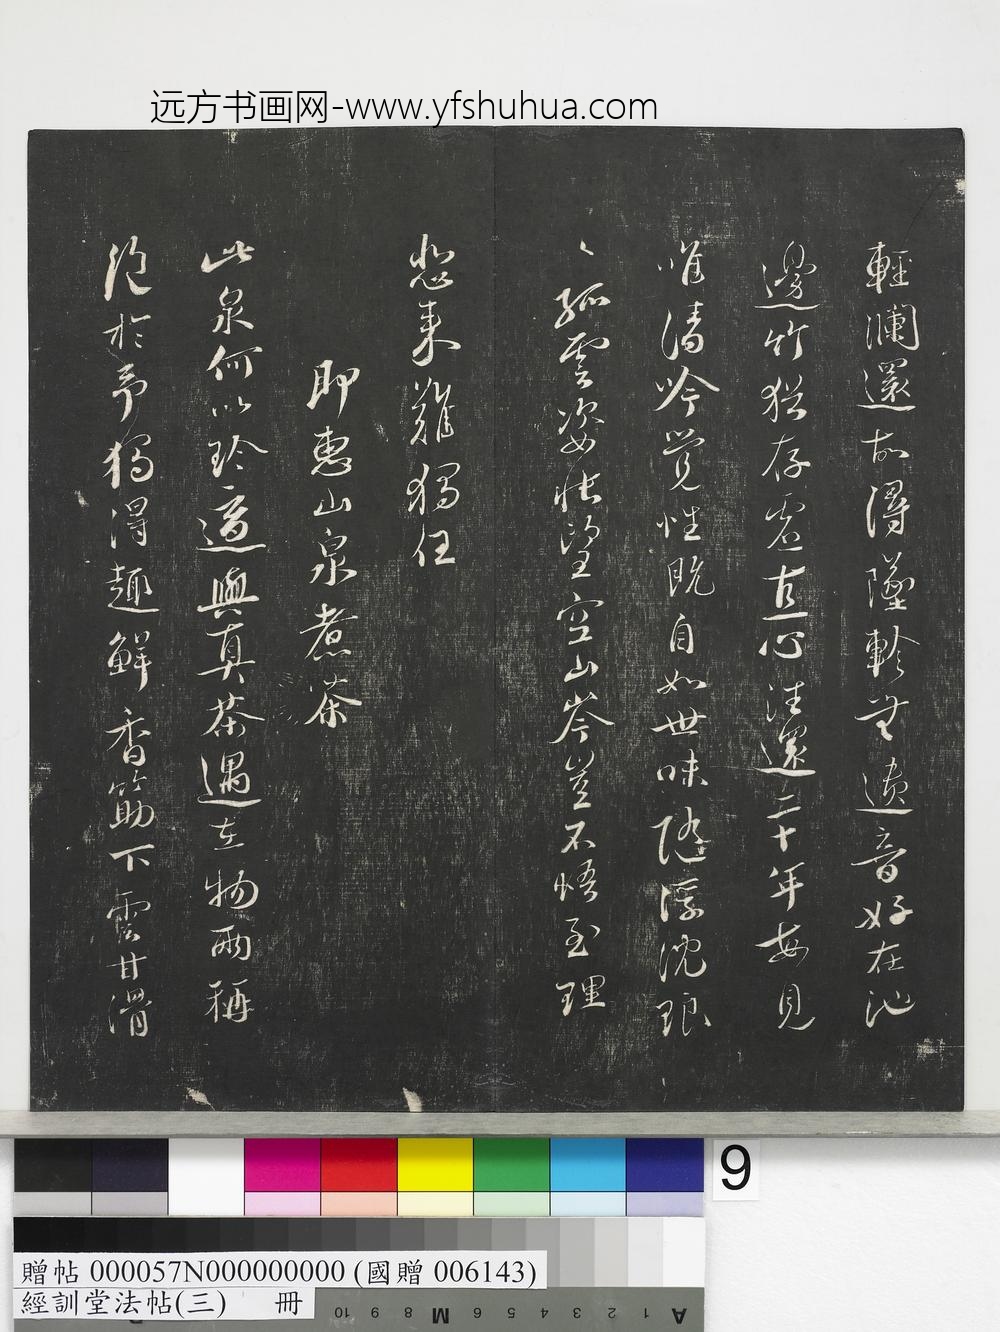 远方书画网-www.yfshuhua.com
輕瀾還故溽墜軫無遺音好在池
邊竹猶存虛直心汪還二十年每見
唯清吟覺性既自如世味隨浮沈琅
〻孤雲姿悵望空山岑豈不悟至理
悲來難獨任
即惠山泉煮茶
此泉何以珍適與真茶遇在物兩稱
絕於予獨得趣鮮香筯下雲甘滑
9
贈帖 000057N000000000 (國贈 006143)
經訓堂法帖(三) 冊
10 9 8 M 6 5 4 3 2 1 A